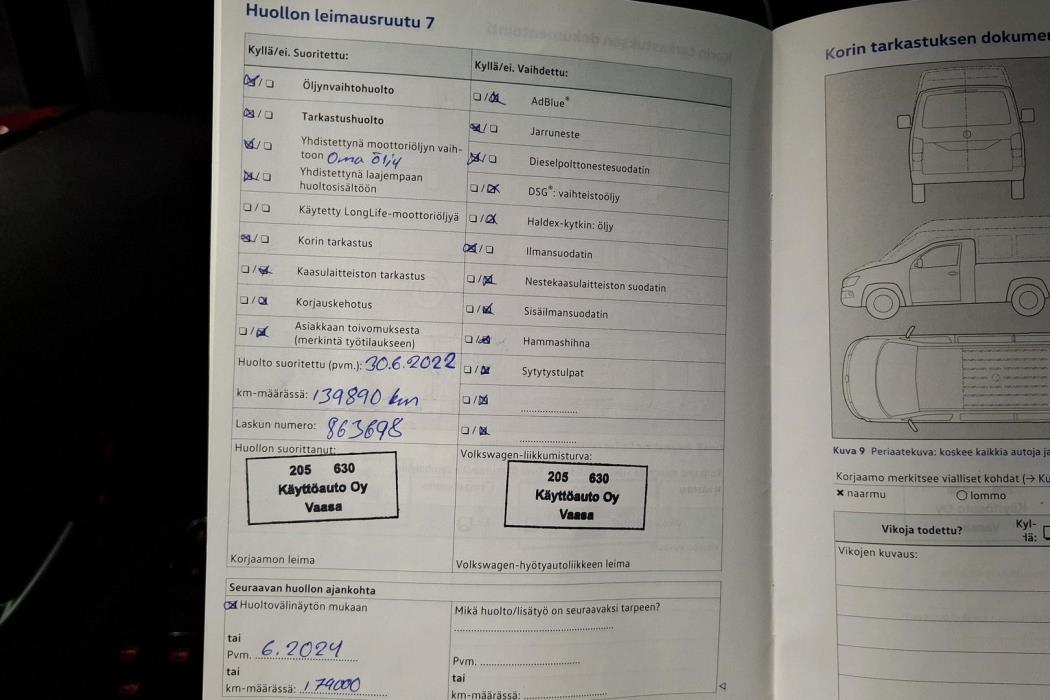 Huollon leimausruutu 7
Kyllä/ei. Suoritettu:
Öljynvaihtohuolto
Tarkastushuolto
Yhdistettynä moottoriöljyn vaih-
toon Oma öljy
Yhdistettynä laajempaan
huoltosisältöön
Käytetty LongLife-moottoriöljyä
Korin tarkastus
Kaasulaitteiston tarkastus
Korjauskehotus
Asiakkaan toivomuksesta
(merkintä työtilaukseen)
Huolto suoritettu (pvm.): 30.6.2022
km-määrässä: 139890 km
Laskun numero: 863698
Huollon suorittanut:
205 630
Käyttöauto Oy
Vaasa
Korjaamon leima
Kyllä/ei. Vaihdettu:
AdBlue®
Jarruneste
Dieselpolttonestesuodatin
DSG®: vaihteistoöljy
Haldex-kytkin: öljy
Ilmansuodatin
Nestekaasulaitteiston suodatin
Sisäilmansuodatin
Hammashihna
Sytytystulpat
Volkswagen-liikkumisturva:
205 630
Käyttöauto Oy
Vaasa
Volkswagen-hyötyautoliikkeen leima
Seuraavan huollon ajankohta
Huoltovälinäytön mukaan
tai
Pvm. 6.2024
tai
km-määrässä: 179000
Mikä huolto/lisätyö on seuraavaksi tarpeen?
Pvm.
tai
km-määrässä:
Korin tarkastuksen dokumen
Kuva 9 Periaatekuva: koskee kaikkia autoja ja
Korjaamo merkitsee vialliset kohdat (→ Ku
× naarmu
○ lommo
Vikoja todettu?
Kyl-
lä:
Vikojen kuvaus: